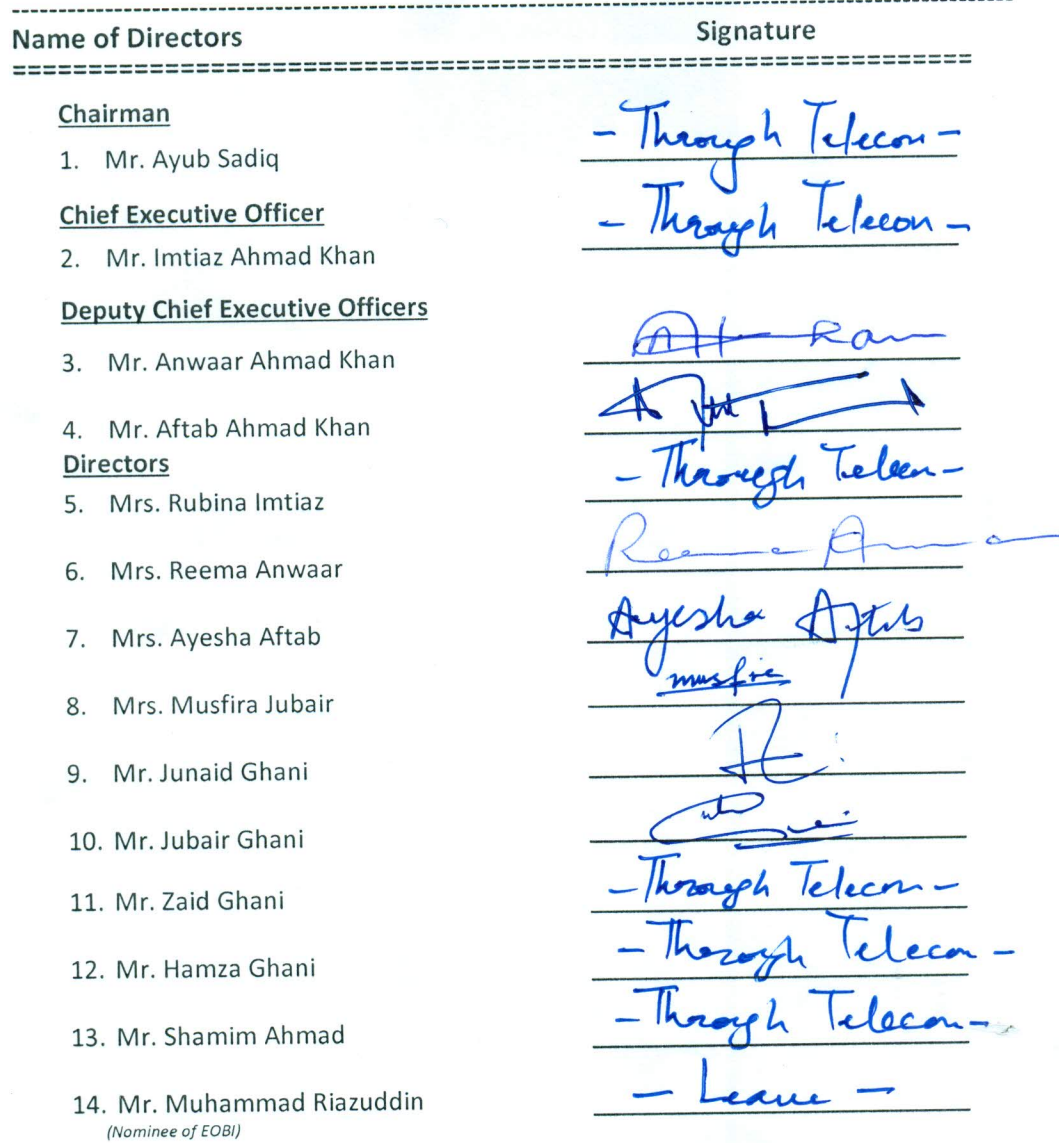 Name of Directors Signature
Chairman
1. Mr. Ayub Sadiq - Through Telecon -
Chief Executive Officer
2. Mr. Imtiaz Ahmad Khan - Through Telecon -
Deputy Chief Executive Officers
3. Mr. Anwaar Ahmad Khan
4. Mr. Aftab Ahmad Khan
Directors
5. Mrs. Rubina Imtiaz - Through Telecon -
6. Mrs. Reema Anwaar Reema
7. Mrs. Ayesha Aftab Ayesha Aftab
8. Mrs. Musfira Jubair
9. Mr. Junaid Ghani
10. Mr. Jubair Ghani
11. Mr. Zaid Ghani - Through Telecon -
12. Mr. Hamza Ghani - Through Telecon -
13. Mr. Shamim Ahmad - Through Telecon -
14. Mr. Muhammad Riazuddin - Leave -
(Nominee of EOBI)